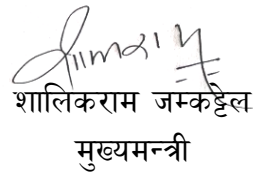 शालिकराम जम्कट्टेल
मुख्यमन्त्री